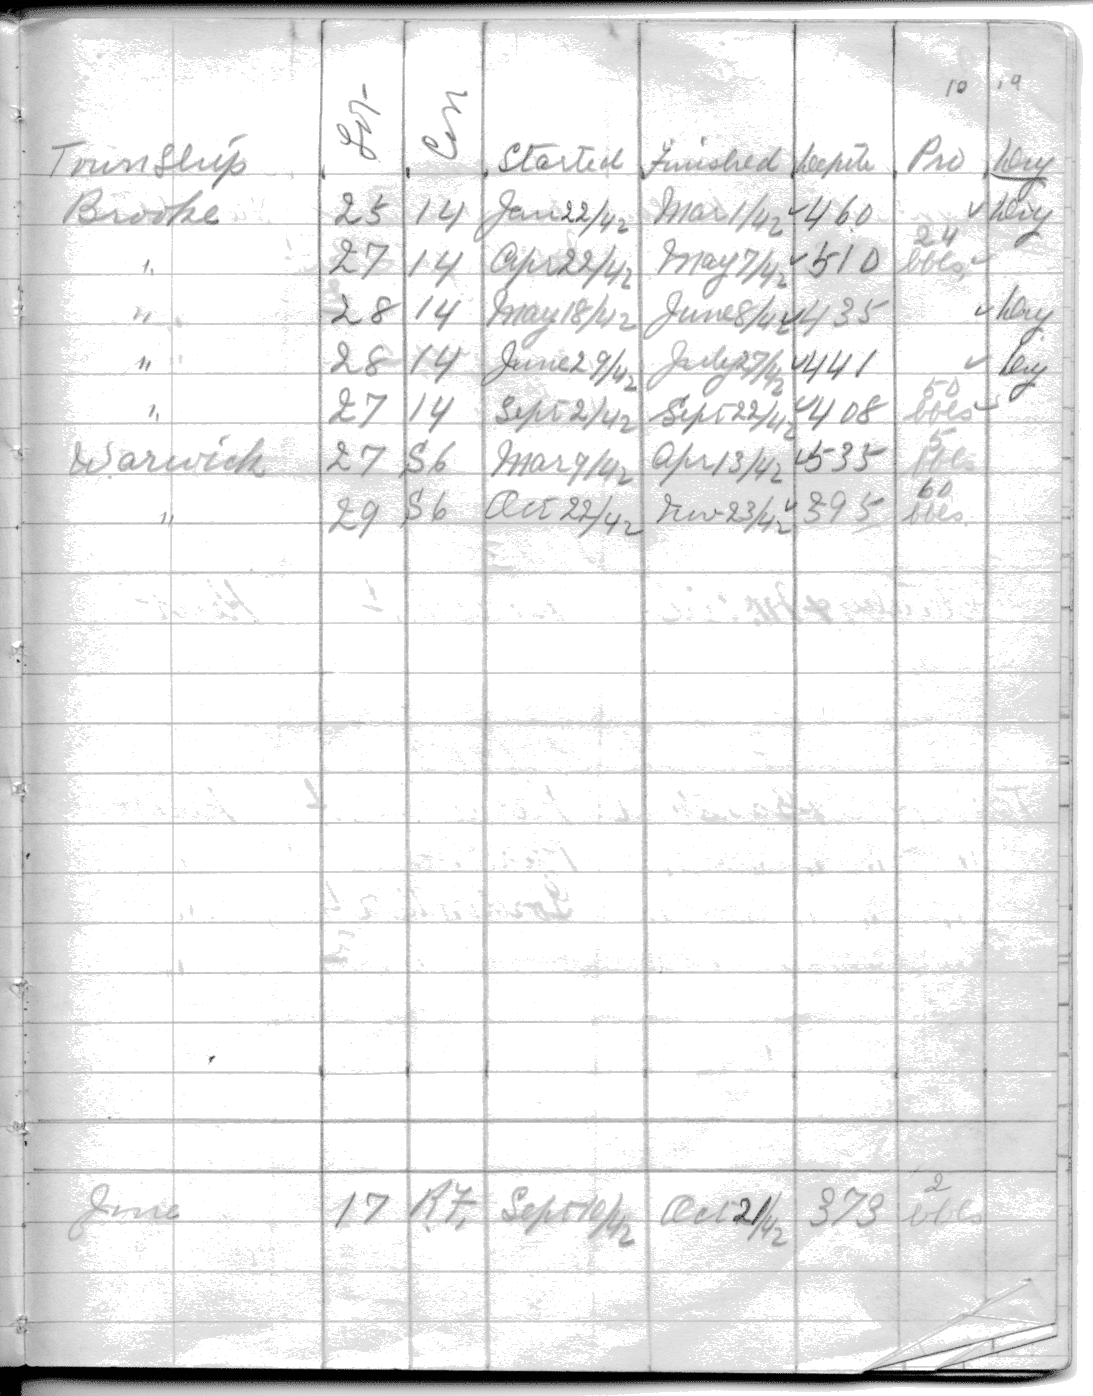 10 19
Township Lot Con Started Finished Depth Pro Dry
Brooke 25 14 Jan 22/42 Mar 1/42 ✓ 460 ✓ Dry
" 27 14 Apr 22/42 May 7/42 ✓ 510 24 bbls ✓
" 28 14 May 18/42 June 8/42 ✓ 435 ✓ Dry
" 28 14 June 29/42 July 27/42 ✓ 441 ✓ Dry
" 27 14 Sept 2/42 Sept 22/42 ✓ 408 50 bbls ✓
Warwick 27 S6 Mar 9/42 Apr 13/42 ✓ 535 5 bbls
" 29 S6 Oct 22/42 Nov 23/42 ✓ 395 60 bbls
17 R.F. Sept 10/42 Oct 21/42 373 2 bbls